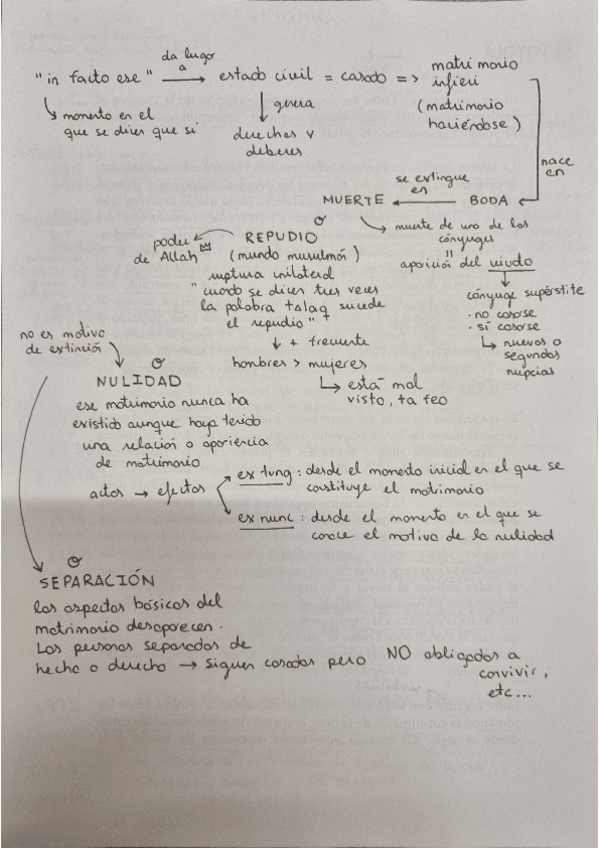 da lugar
a
"in facto ese" → estado civil = casado => matrimonio
infieri
(matrimonio
haciéndose)
momento en el
que se dicen que si
genera
derechos y
deberes
nace
en
BODA
se extingue
en
MUERTE
muerte de uno de los
cónyuges
"
aparición del viudo
cónyuge supérstite
· no casarse
· sí casarse
nuevos o
segundas
nupcias
REPUDIO
poder
de Allah
(mundo musulmán)
ruptura unilateral
"cuando se dicen tres veces
la palabra talaq sucede
el repudio"
+ frecuente
hombres > mujeres
está mal
visto, ta feo
no es motivo
de extinción
NULIDAD
ese matrimonio nunca ha
existido aunque haya tenido
una relación o apariencia
de matrimonio
actos → efectos
ex tung: desde el momento inicial en el que se
constituye el matrimonio
ex nunc: desde el momento en el que se
conoce el motivo de la nulidad
SEPARACIÓN
los aspectos básicos del
matrimonio desaparecen.
Las personas separadas de
hecho o derecho → siguen casadas pero NO obligados a
convivir,
etc...